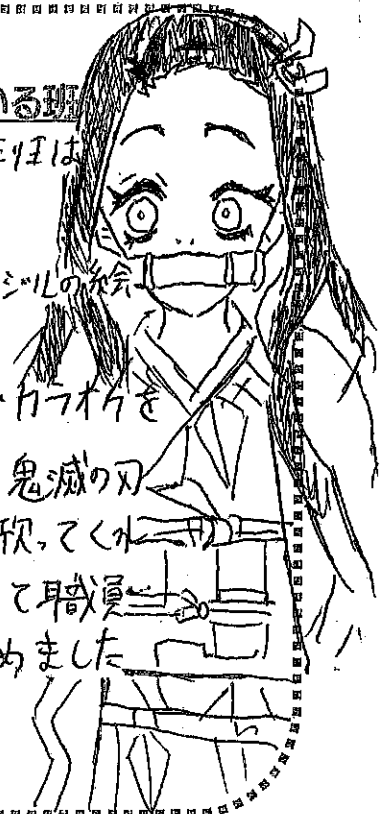 る班
班は
ジルの絵
カラオケを
鬼滅の刃
歌ってくれ
て職員
めました